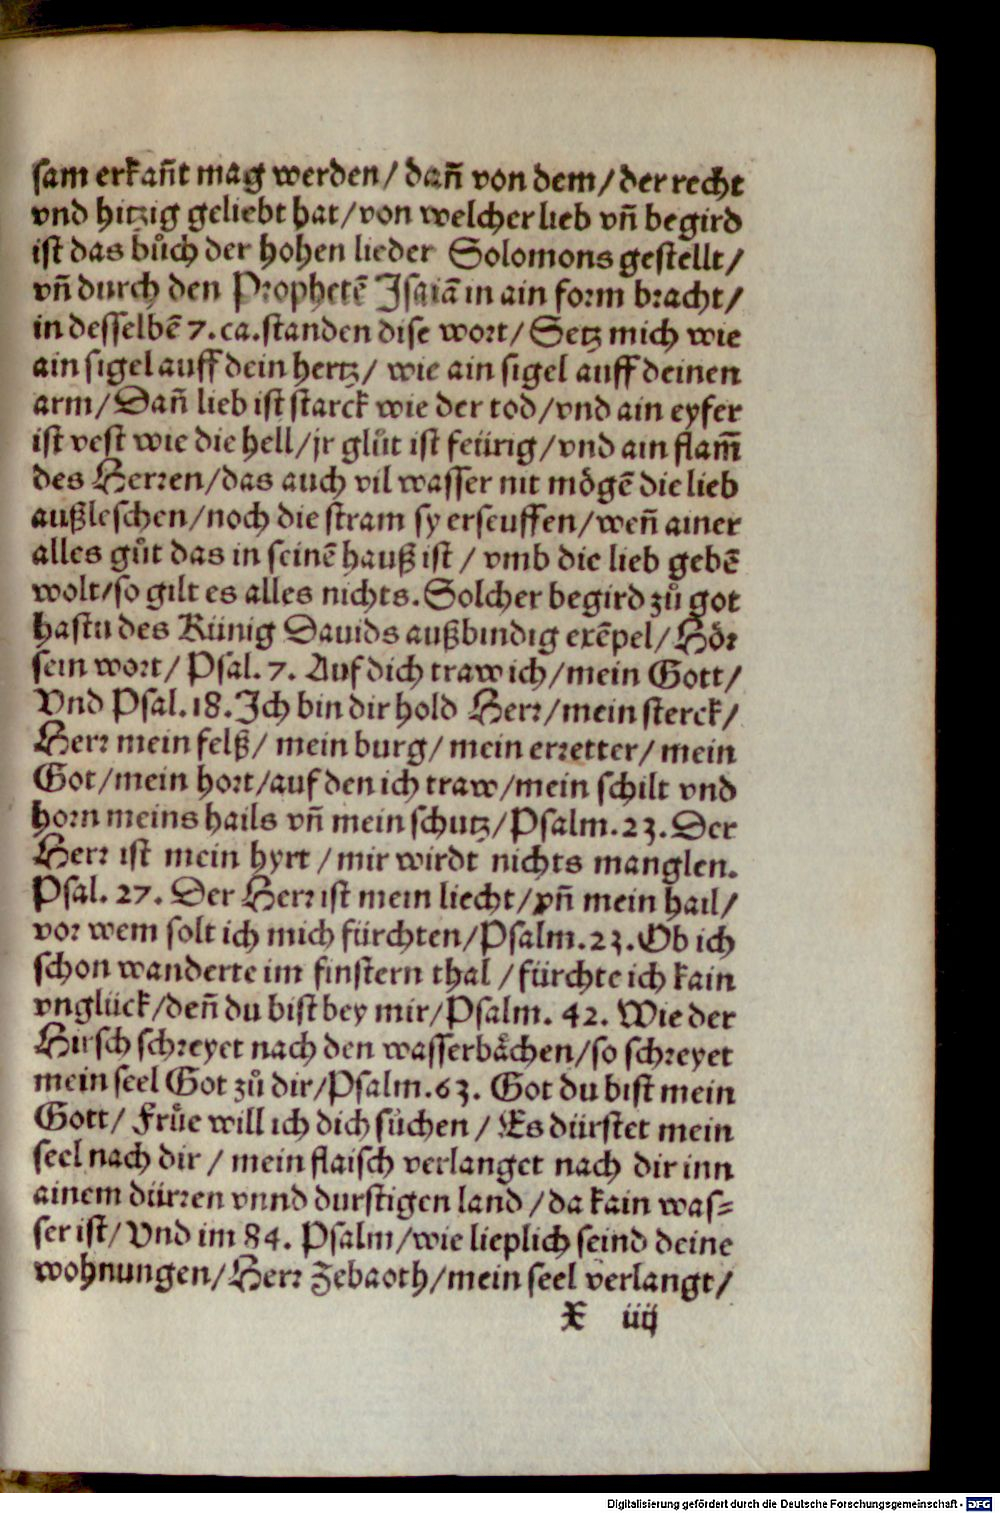 sam erkañt mag werden/ dañ von dem/ der recht
vnd hitzig geliebt hat/von welcher lieb vñ begird
ist das bůch der hohen lieder Solomons gestellt/
vñ durch den Prophetē Jsaiā in ain form bracht/
in desselbē 7.ca.standen dise wort/ Setz mich wie
ain sigel auff dein hertz/ wie ain sigel auff deinen
arm/ Dañ lieb ist starck wie der tod/vnd ain eyfer
ist vest wie die hell/jr glůt ist feürig/vnd ain flam̃
des Herren/das auch vil wasser nit mögē die lieb
außleschen/noch die stram sy erseuffen/weñ ainer
alles gůt das in seinē hauß ist / vmb die lieb gebē
wolt/so gilt es alles nichts. Solcher begird zů got
hastu des Künig Dauids außbindig exēpel/ Hör
sein wort/ Psal. 7. Auf dich traw ich/mein Gott/
Vnd Psal.18.Jch bin dir hold Herr/mein sterck/
Herr mein felß/ mein burg/ mein erretter/ mein
Got/mein hort/auf den ich traw/mein schilt vnd
horn meins hails vñ mein schutz/Psalm.23.Der
Herr ist mein hyrt /mir wirdt nichts manglen.
Psal. 27. Der Herr ist mein liecht/vñ mein hail/
vor wem solt ich mich fürchten/Psalm.23.Ob ich
schon wanderte im finstern thal /fürchte ich kain
vnglück/deñ du bist bey mir/Psalm. 42. Wie der
Hirsch schreyet nach den wasserbächen/so schreyet
mein seel Got zů dir/Psalm.63. Got du bist mein
Gott/ Frůe will ich dich sůchen / Es dürstet mein
seel nach dir / mein flaisch verlanget nach dir inn
ainem dürren vnnd durstigen land /da kain was⸗
ser ist/ Vnd im 84. Psalm/wie lieplich seind deine
wohnungen/Herr Zebaoth/mein seel verlangt/
X iiij
Digitalisierung gefördert durch die Deutsche Forschungsgemeinschaft - DFG